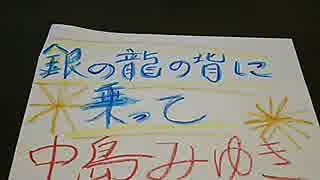 銀の龍の背に
乗って
中島みゆき